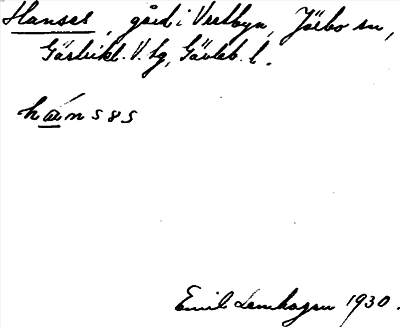 Hanses, gård i Vestbyn, Järbo sn,
Gästrikl. V. tg, Gävleb. l.
hanses
Emil Lemhagen 1930.